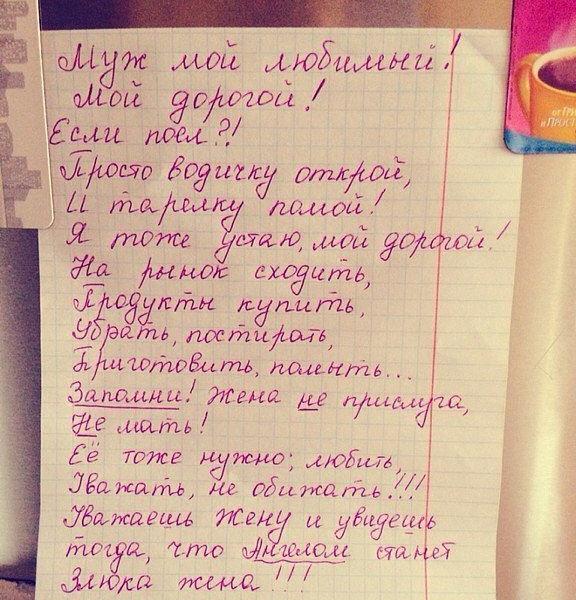 Муж мой любимый!
Мой дорогой!
Если поел?!
Просто водичку открой,
И тарелку помой!
Я тоже устаю, мой дорогой!
На рынок сходить,
Продукты купить,
Убрать, постирать,
Приготовить, помыть...
Запомни! Жена не прислуга,
Не мать!
Её тоже нужно; любить,
Уважать, не обижать!!!
Уважаешь Жену и увидешь
тогда, что Ангелом станет
Злюка жена!!!